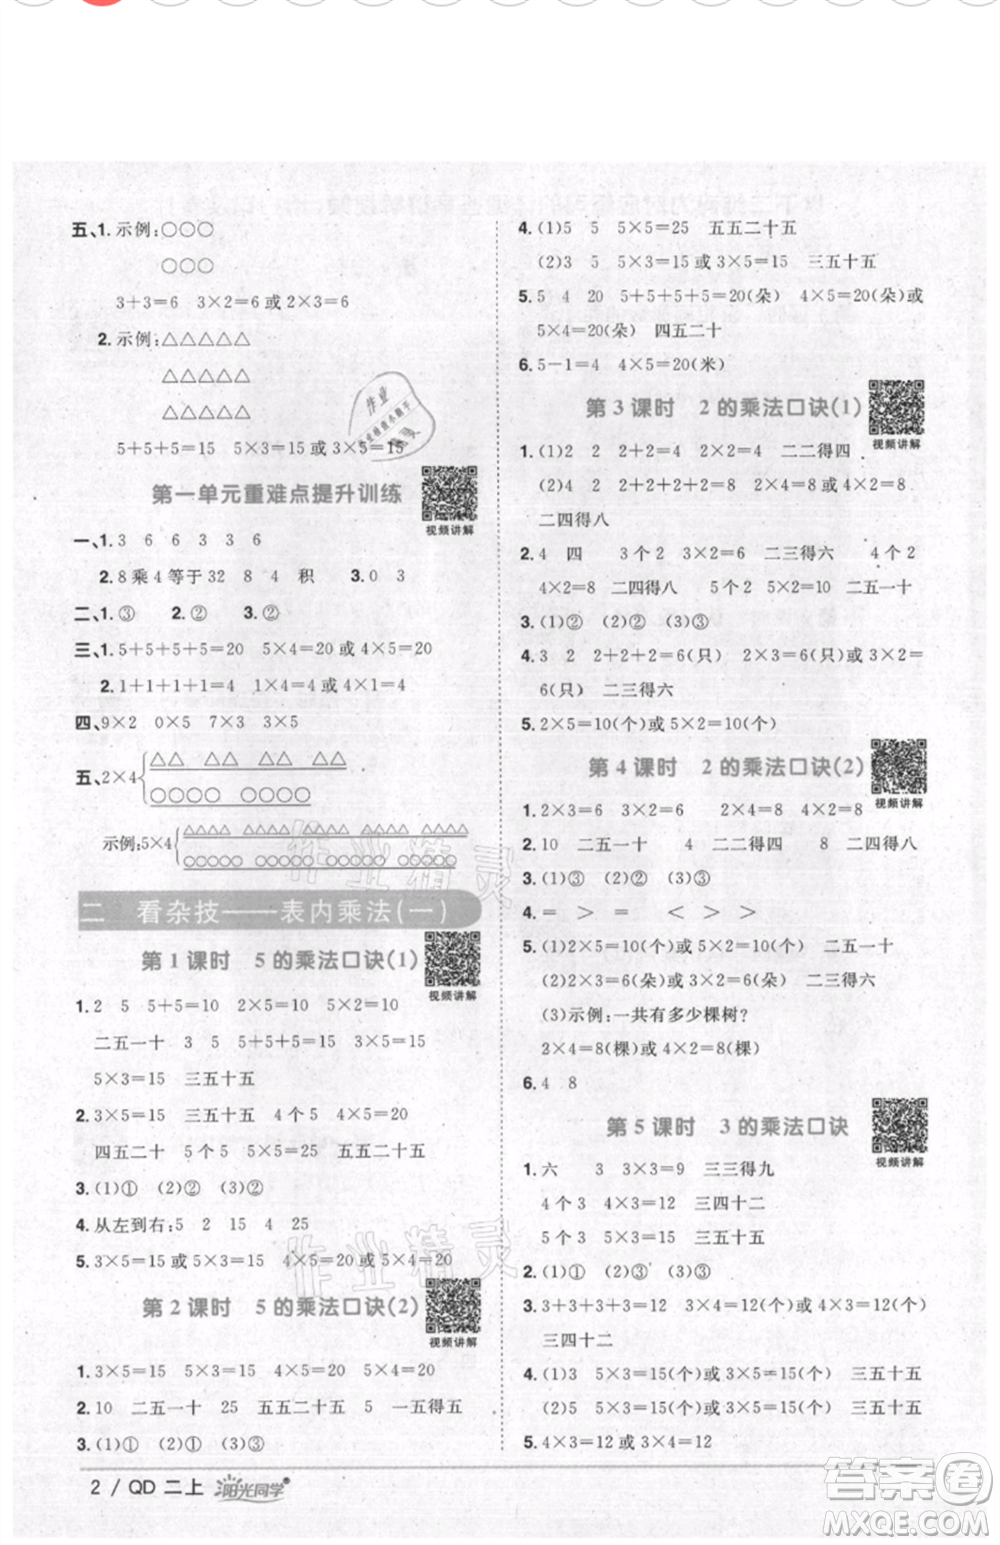 五、1. 示例:○○○
○○○
3+3=6 3×2=6 或 2×3=6
2. 示例:△△△△△
△△△△△
△△△△△
5+5+5=15 5×3=15 或 3×5=15
第一单元重难点提升训练
视频讲解
一、1. 3 6 6 3 3 6
2. 8乘4等于32 8 4 积 3. 0 3
二、1. ③ 2. ② 3. ②
三、1. 5+5+5+5=20 5×4=20 或 4×5=20
2. 1+1+1+1=4 1×4=4 或 4×1=4
四、9×2 0×5 7×3 3×5
五、2×4 △△ △△ △△ △△
○○○○ ○○○○
示例:5×4 △△△△△ △△△△△ △△△△△ △△△△△
○○○○○ ○○○○○ ○○○○○ ○○○○○
二 看杂技——表内乘法(一)
第1课时 5的乘法口诀(1)
视频讲解
1. 2 5 5+5=10 2×5=10 5×2=10
二五一十 3 5 5+5+5=15 3×5=15
5×3=15 三五十五
2. 3×5=15 三五十五 4个5 4×5=20
四五二十 5个5 5×5=25 五五二十五
3. (1)① (2)② (3)②
4. 从左到右:5 2 15 4 25
5. 3×5=15 或 5×3=15 4×5=20 或 5×4=20
第2课时 5的乘法口诀(2)
视频讲解
1. 3×5=15 5×3=15 4×5=20 5×4=20
2. 10 二五一十 25 五五二十五 5 一五得五
3. (1)① (2)② (3)③
4. (1)5 5 5×5=25 五五二十五
(2)3 5 5×3=15 或 3×5=15 三五十五
5. 5 4 20 5+5+5+5=20(朵) 4×5=20(朵) 或
5×4=20(朵) 四五二十
6. 5-1=4 4×5=20(米)
第3课时 2的乘法口诀(1)
视频讲解
1. (1)2 2 2+2=4 2×2=4 二二得四
(2)4 2 2+2+2+2=8 2×4=8 4×2=8
二四得八
2. 4 四 3个2 3×2=6 二三得六 4个2
4×2=8 二四得八 5个2 5×2=10 二五一十
3. (1)② (2)③ (3)③
4. 3 2 2+2+2=6(只) 2×3=6(只) 或 3×2=
6(只) 二三得六
5. 2×5=10(个) 或 5×2=10(个)
第4课时 2的乘法口诀(2)
视频讲解
1. 2×3=6 3×2=6 2×4=8 4×2=8
2. 10 二五一十 4 二二得四 8 二四得八
3. (1)① (2)③ (3)②
4. = > > <
5. (1)2×5=10 或 5×2=10 二五一十
(2)3×2=6(朵) 或 2×3=6(朵) 二三得六
(3)示例:一共有多少棵树?
2×4=8(棵) 或 4×2=8(棵)
6. 4 8
第5课时 3的乘法口诀
视频讲解
1. 六 3 3×3=9 三三得九
4个3 4×3=12 三四十二
5个3 5×3=15 三五十五
2. (1)① (2)③ (3)②
3. 3+3+3+3=12 3×4=12 或 4×3=12
三四十二
4. (1)3 5×3=15(个) 或 3×5=15(个) 三五十五
(2)5 3×5=15(个) 或 5×3=15(个) 三五十五
5. 4×3=12 或 3×4=12
2 / QD 二上 阳光同学®
作业精灵
作业精灵
答案圈
MXQE.COM